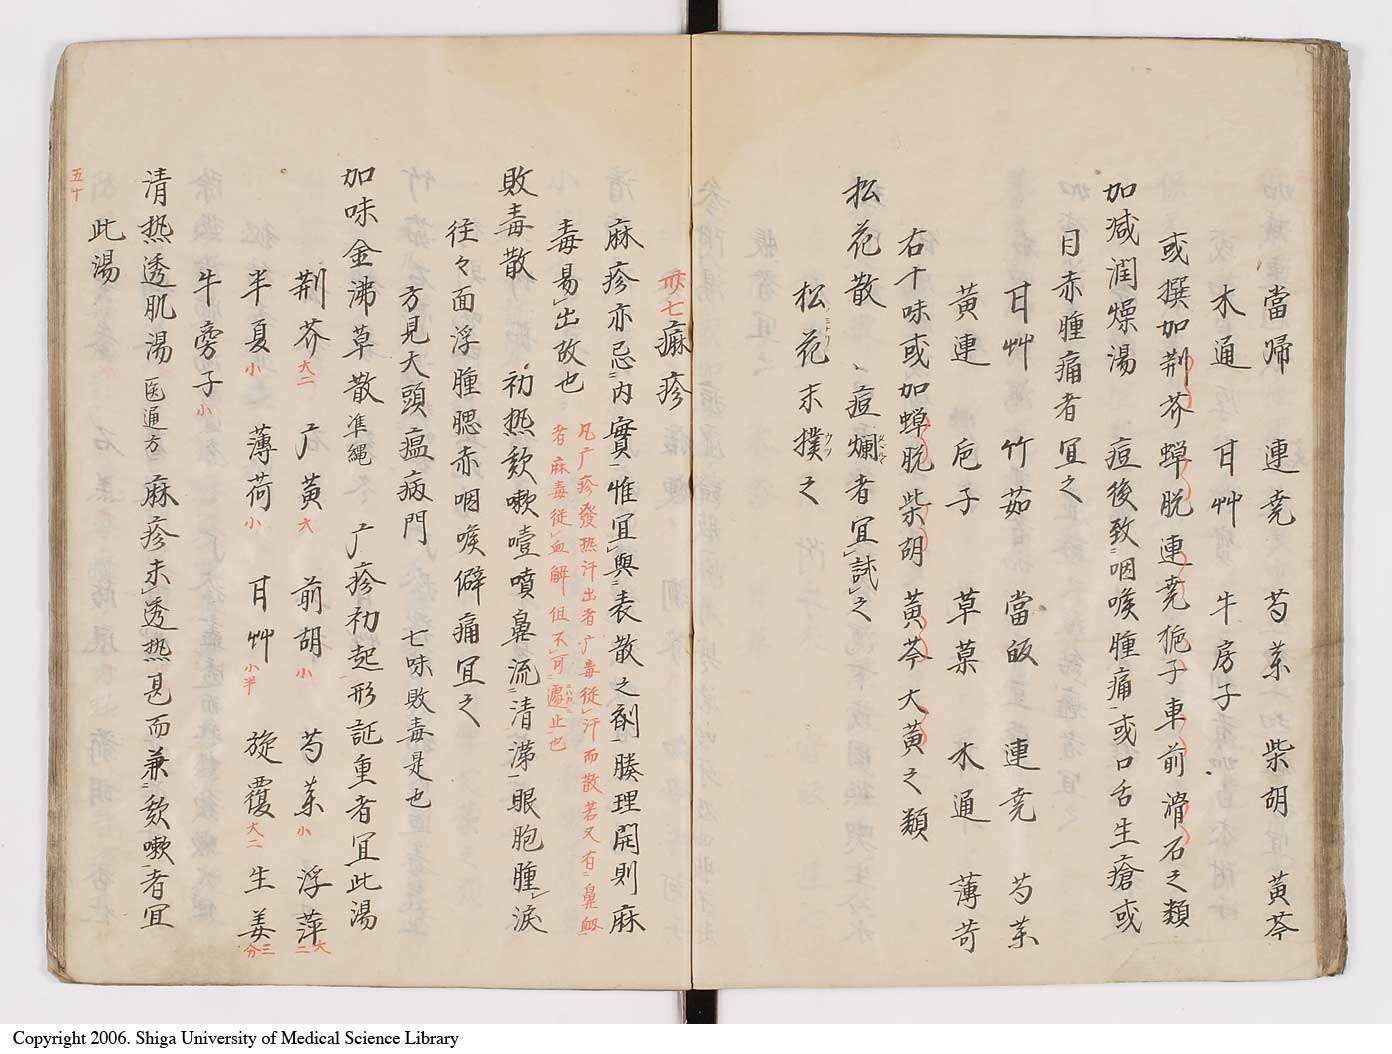 當帰 連翹 芍薬 柴胡 黄芩
木通 甘艸 牛房子
或撰加荆芥蝉脱連翹梔子車前滑石之類
加減潤燥湯 痘後致咽喉腫痛或口舌生瘡或
目赤腫痛者宜之
甘艸 竹茹 當皈 連翹 芍薬
黄連 巵子 草菓 木通 薄荷
右十味或加蝉脱柴胡黄芩大黄之類
松花散 痘爛者宜試之
松花末撲之
卅七麻疹
麻疹亦忌内實惟宜與表散之剤腠理開則麻
毒易出故也
凡广疹發热汗出者广毒従汗而散若又有鼻衂
者麻毒従血解但不可遽止也
敗毒散 初热欬嗽噎噴鼻流清涕眼胞腫淚
往々面浮腫腮赤咽喉僻痛宜之
方見大頭瘟病門 七味敗毒是也
加味金沸草散 准縄 广疹初起形証重者宜此湯
荆芥大二 广黄大 前胡小 芍薬小 浮萍大二
半夏小 薄荷小 甘艸小半 旋覆大二 生姜三分
牛旁子小
清热透肌湯 医通方 麻疹未透热甚而兼欬嗽者宜
此湯
五十
Copyright 2006. Shiga University of Medical Science Library